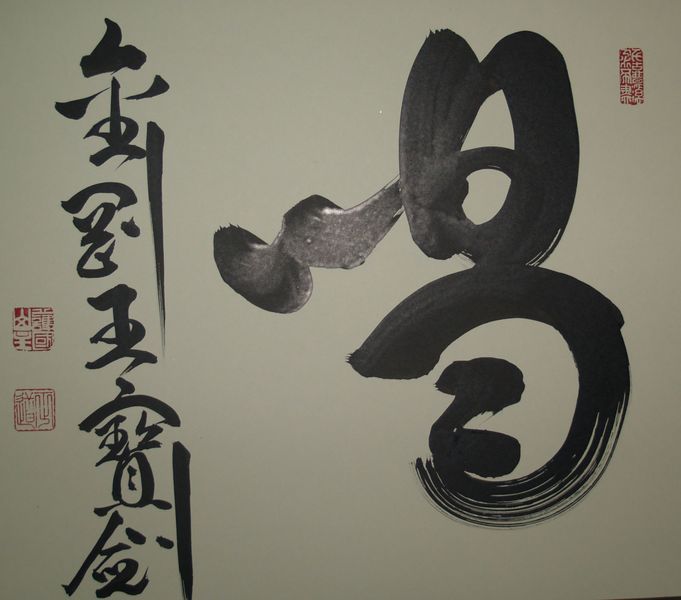 喝
金剛王寳劍